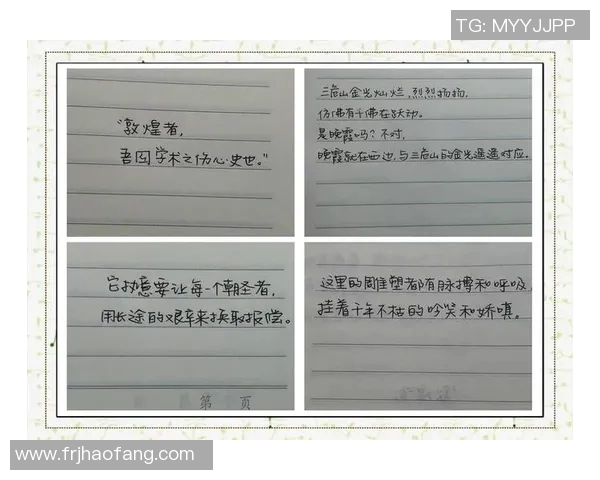 TG: MYYJJPP
"敦煌者,
吾国学术之伤心史也。"
三危山金光灿烂,烈烈扬扬,
仿佛有千佛在跃动。
是晚霞吗?不对,
晚霞就在西边,与三危山的金光遥遥对应。
它执意要让每一个朝圣者,
用长途的艰辛来换取报偿。
第 页
这里的雕塑都有脉搏和呼吸,
挂着千年不枯的吟笑和娇嗔。
www.frjhaofang.com